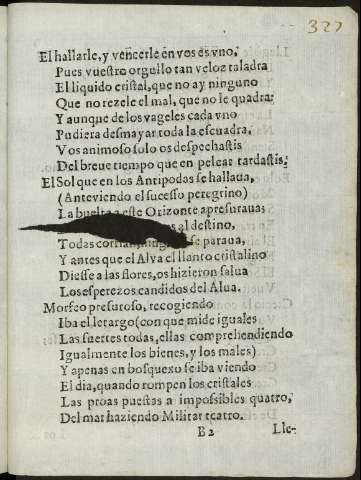 327
El hallarle, y vencerle en vos es vno,
Pues vuestro orgullo tan veloz taladra
El liquido cristal, que no ay ninguno
Que no rezele el mal, que no le quadra:
Y aunque de los vageles cada vno
Pudiera desmayar toda la escuadra,
Vos animoso solo os despechastis
Del breue tiempo que en pelear tardastis.
El Sol que en los Antipodas se hallaua,
(Anteviendo el sucesso peregrino)
La buelta a este Orizonte apresuraua
al destino,
Todas se paraua,
Y antes que el Alva el llanto cristalino
Diesse a las flores, os hizieron salua
Los esperezos candidos del Alua.
Morfeo presuroso, recogiendo
Iba el letargo (con que mide iguales
Las suertes todas, ellas comprehendiendo
Igualmente los bienes, y los males)
Y apenas en bosquexo se iba viendo
El dia, quando rompen los cristales
Las proas puestas a impossibles quatro,
Del mar haziendo Militar teatro.
B2 Lle-